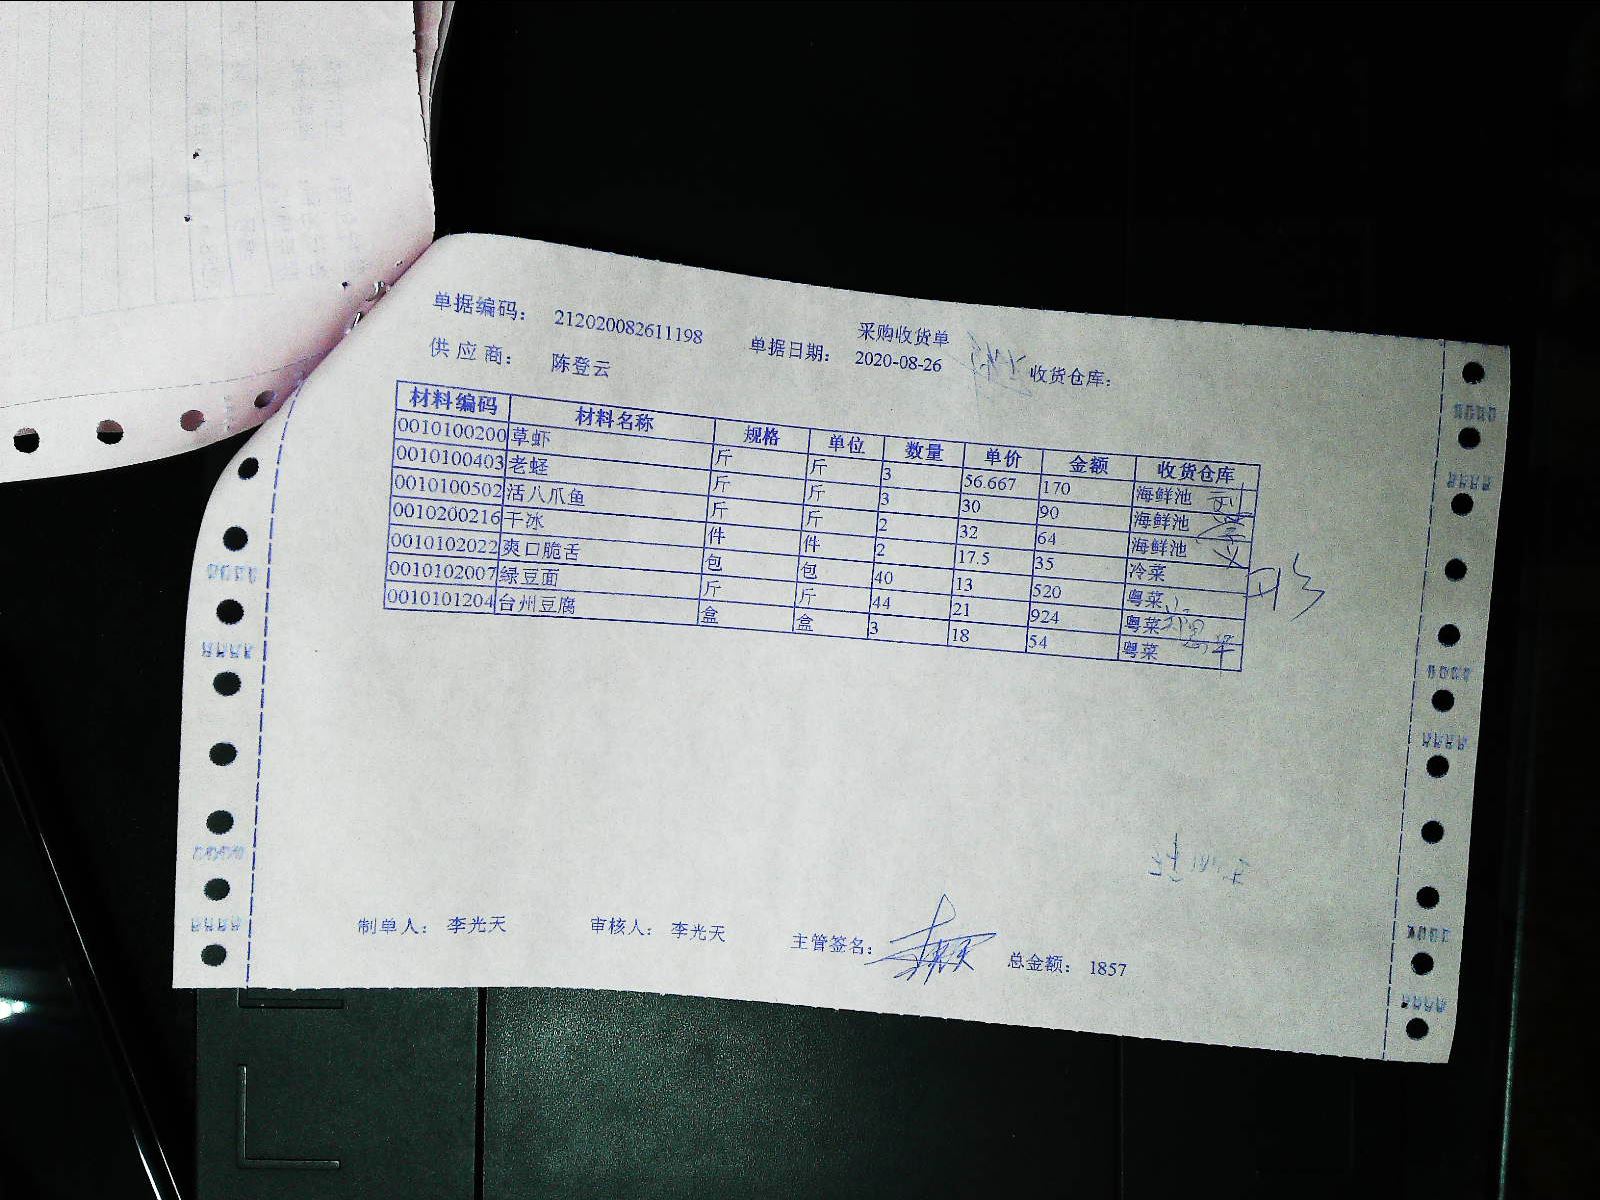 采购收货单
单据编码： 212020082611198 单据日期： 2020-08-26 收货仓库：
供应商： 陈登云
材料编码 材料名称 规格 单位 数量 单价 金额 收货仓库
0010100200 草虾 斤 斤 3 56.667 170 海鲜池
0010100403 老蛏 斤 斤 3 30 90 海鲜池
0010100502 活八爪鱼 斤 斤 2 32 64 海鲜池
0010200216 干冰 件 件 2 17.5 35 冷菜
0010102022 爽口脆舌 包 包 40 13 520 粤菜
0010102007 绿豆面 斤 斤 44 21 924 粤菜
0010101204 台州豆腐 盒 盒 3 18 54 粤菜
制单人： 李光天 审核人： 李光天 主管签名： 总金额： 1857